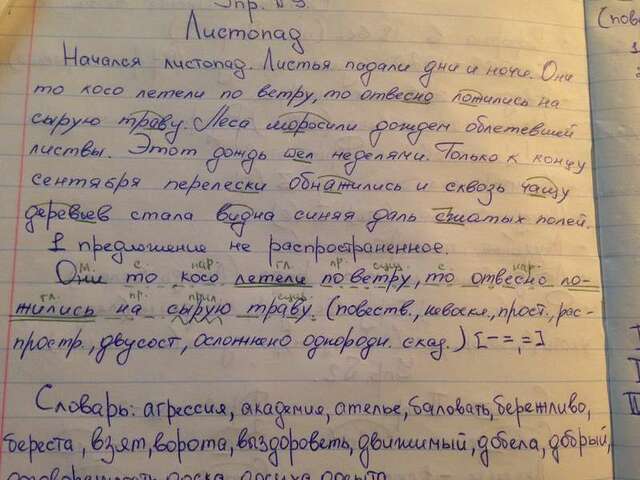 Упр.
Листопад
Начался листопад. Листья падали дни и ночи. Они
то косо летели по ветру, то отвесно ложились на
сырую траву. Леса моросили дождем облетевшей
листвы. Этот дождь шел неделями. Только к концу
сентября перелески обнажились и сквозь чащу
деревьев стала видна синяя даль сжатых полей.
1 предложение не распространенное.
м. с. нар. гл. пр. сущ. с. нар.
Они то косо летели по ветру, то отвесно ло-
гл. пр. прил сущ.
жились на сырую траву. (повеств., невоскл., прост., рас-
простр., двусост., осложнено однородн. сказ.) [- =, =]
Словарь: агрессия, академия, ателье, баловать, бережливо,
береста, взят, ворота, выздороветь, движимый, добела, добрый,
(пове